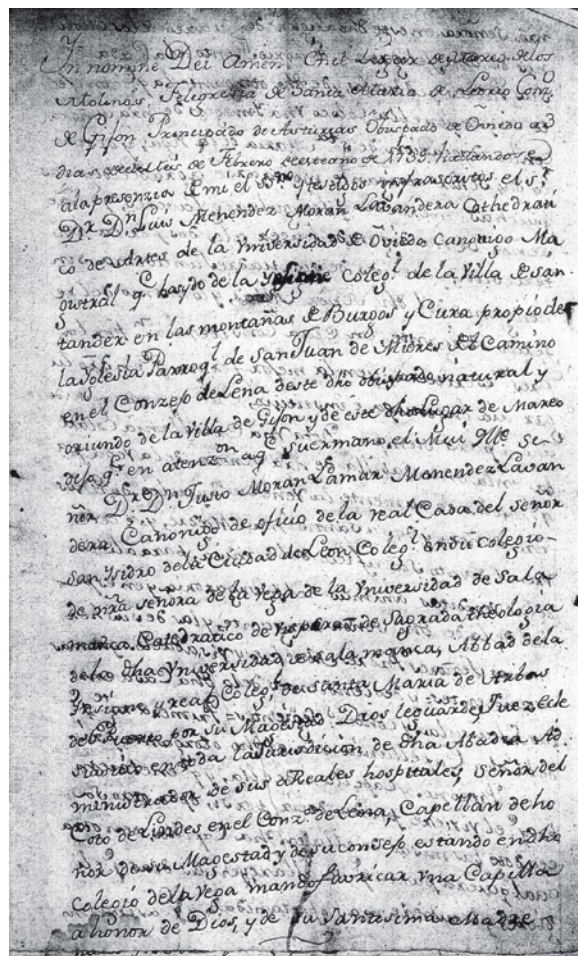 In nomine Dei Amen. En el Lugar de Mareo de los
Molinos, Feligresía de Santa Maria de Leorio Conzº
de Gijon Principado de Asturias Obispado de Oviedo a
dias de el mes de Febrero de este año de 1739. hallandose
a la presenzia de mi el ssnº y testigos infrascritos el sr
Dr. Dn Luis Menendez Moran Lavandera Cathedrati
co de Artes de la Vniversidad de Oviedo Canonigo Ma
gistral q ha sydo de la Ynsigne Colegl de la Villa de San
tander en las montañas de Burgos y Cura propio de
la Yglesia Parrogl de San Juan de Mieres del Camino
en el Conzejo de Lena deste dho obispado natural y
oriundo de la Villa de Gijon y de este dho Lugar de Mareo
dijo qe en atenzon a q su ermano el Mui Ille se
ñor Dr. Dn Justo Moran Lamar Menendez Lavan
dera, Canonigo de oficio de la real Casa del señor
San Ysidro de la Ciudad de Leon Colegl en su Colegio
de nra señora de la Vega de la Vniversidad de Sala
manca, Catedratico de visperas de Sagrada theologia
de la dha Vniversidad de salamanca, Abbad de la
Ynsigne y real Colegl de Santa Maria de Arbas
del Puerto por su Magestad Dios le guarde, Juez Ecle
siastico en toda la Jurisdicion de dha Abadia Ad
ministrador de sus Reales hospitales, Señor del
Coto de Lindes en el Conzo de Lena, Capellan de ho
nor de su Magestad y de su consejo estando en dho
Colegio de la Vega mando favricar vna Capilla
a honor de Dios, y de su Santisima Madre